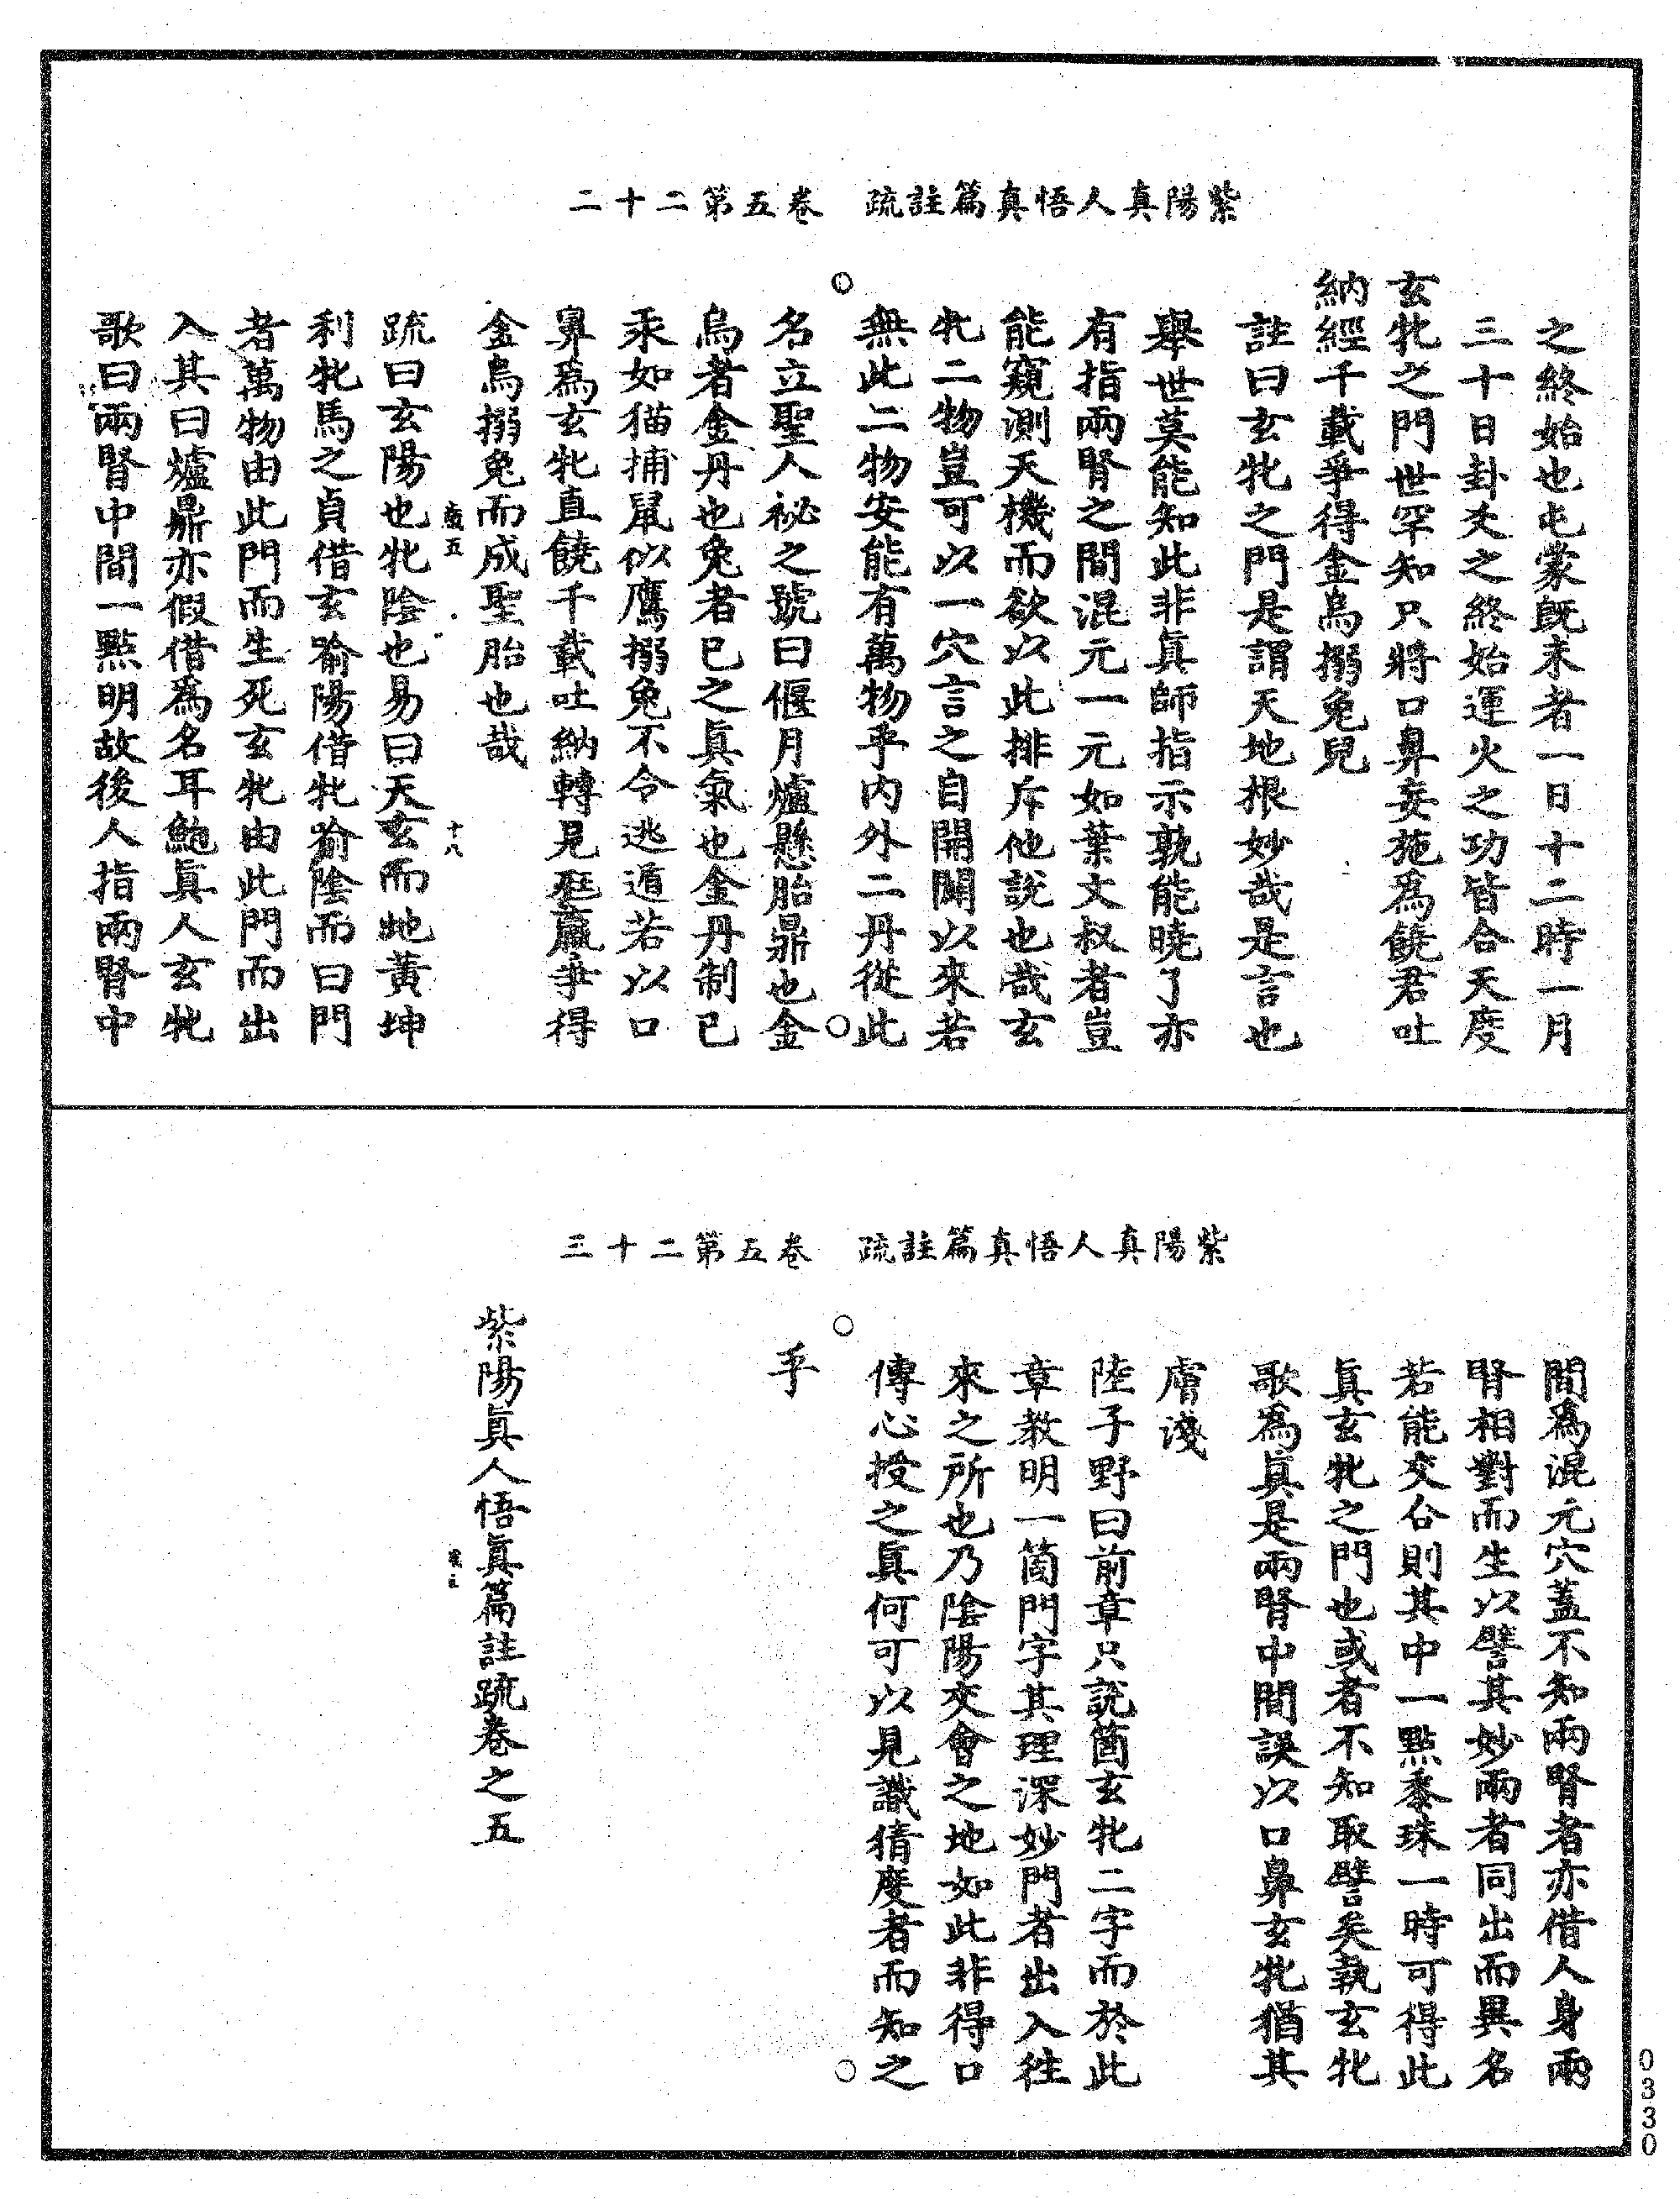 紫陽真人悟真篇註疏 卷五第二十二
之終始也屯蒙既未者一日十二時一月
三十日卦爻之終始運火之功皆合天度
玄牝之門世罕知只將口鼻妄施為饒君吐
納經千載爭得金烏搦兔兒
註曰玄牝之門是謂天地根妙哉是言也
舉世莫能知此非真師指示孰能曉了亦
有指兩腎之間混元一元如葉文叔者豈
能窺測天機而欲以此排斥他說也哉玄
牝二物豈可以一穴言之自開闢以來若
無此二物安能有萬物乎內外二丹從此
名立聖人祕之號曰偃月爐懸胎鼎也金
烏者金丹也兔者己之真氣也金丹制己
汞如猫捕鼠似鷹搦兔不令逃遁若以口
鼻為玄牝直饒千載吐納轉見尫羸爭得
金烏搦兔而成聖胎也哉
十八
疏曰玄陽也牝陰也易曰天玄而地黃坤
利牝馬之貞借玄喻陽借牝喻陰而曰門
者萬物由此門而生死玄牝由此門而出
入其曰爐鼎亦假借為名耳鮑真人玄牝
歌曰兩腎中間一點明故後人指兩腎中
紫陽真人悟真篇註疏 卷五第二十三
間為混元穴蓋不知兩腎者亦借人身兩
腎相對而生以譬其妙兩者同出而異名
若能交合則其中一點黍珠一時可得此
真玄牝之門也或者不知取譬矣執玄牝
歌為真是兩腎中間誤以口鼻玄牝猶其
膚淺
陸子野曰前章只說箇玄牝二字而於此
章教明一箇門字其理深妙門者出入往
來之所也乃陰陽交會之地如此非得口
傳心授之真何可以見識猜度者而知之
乎
紫陽真人悟真篇註疏卷之五
0330